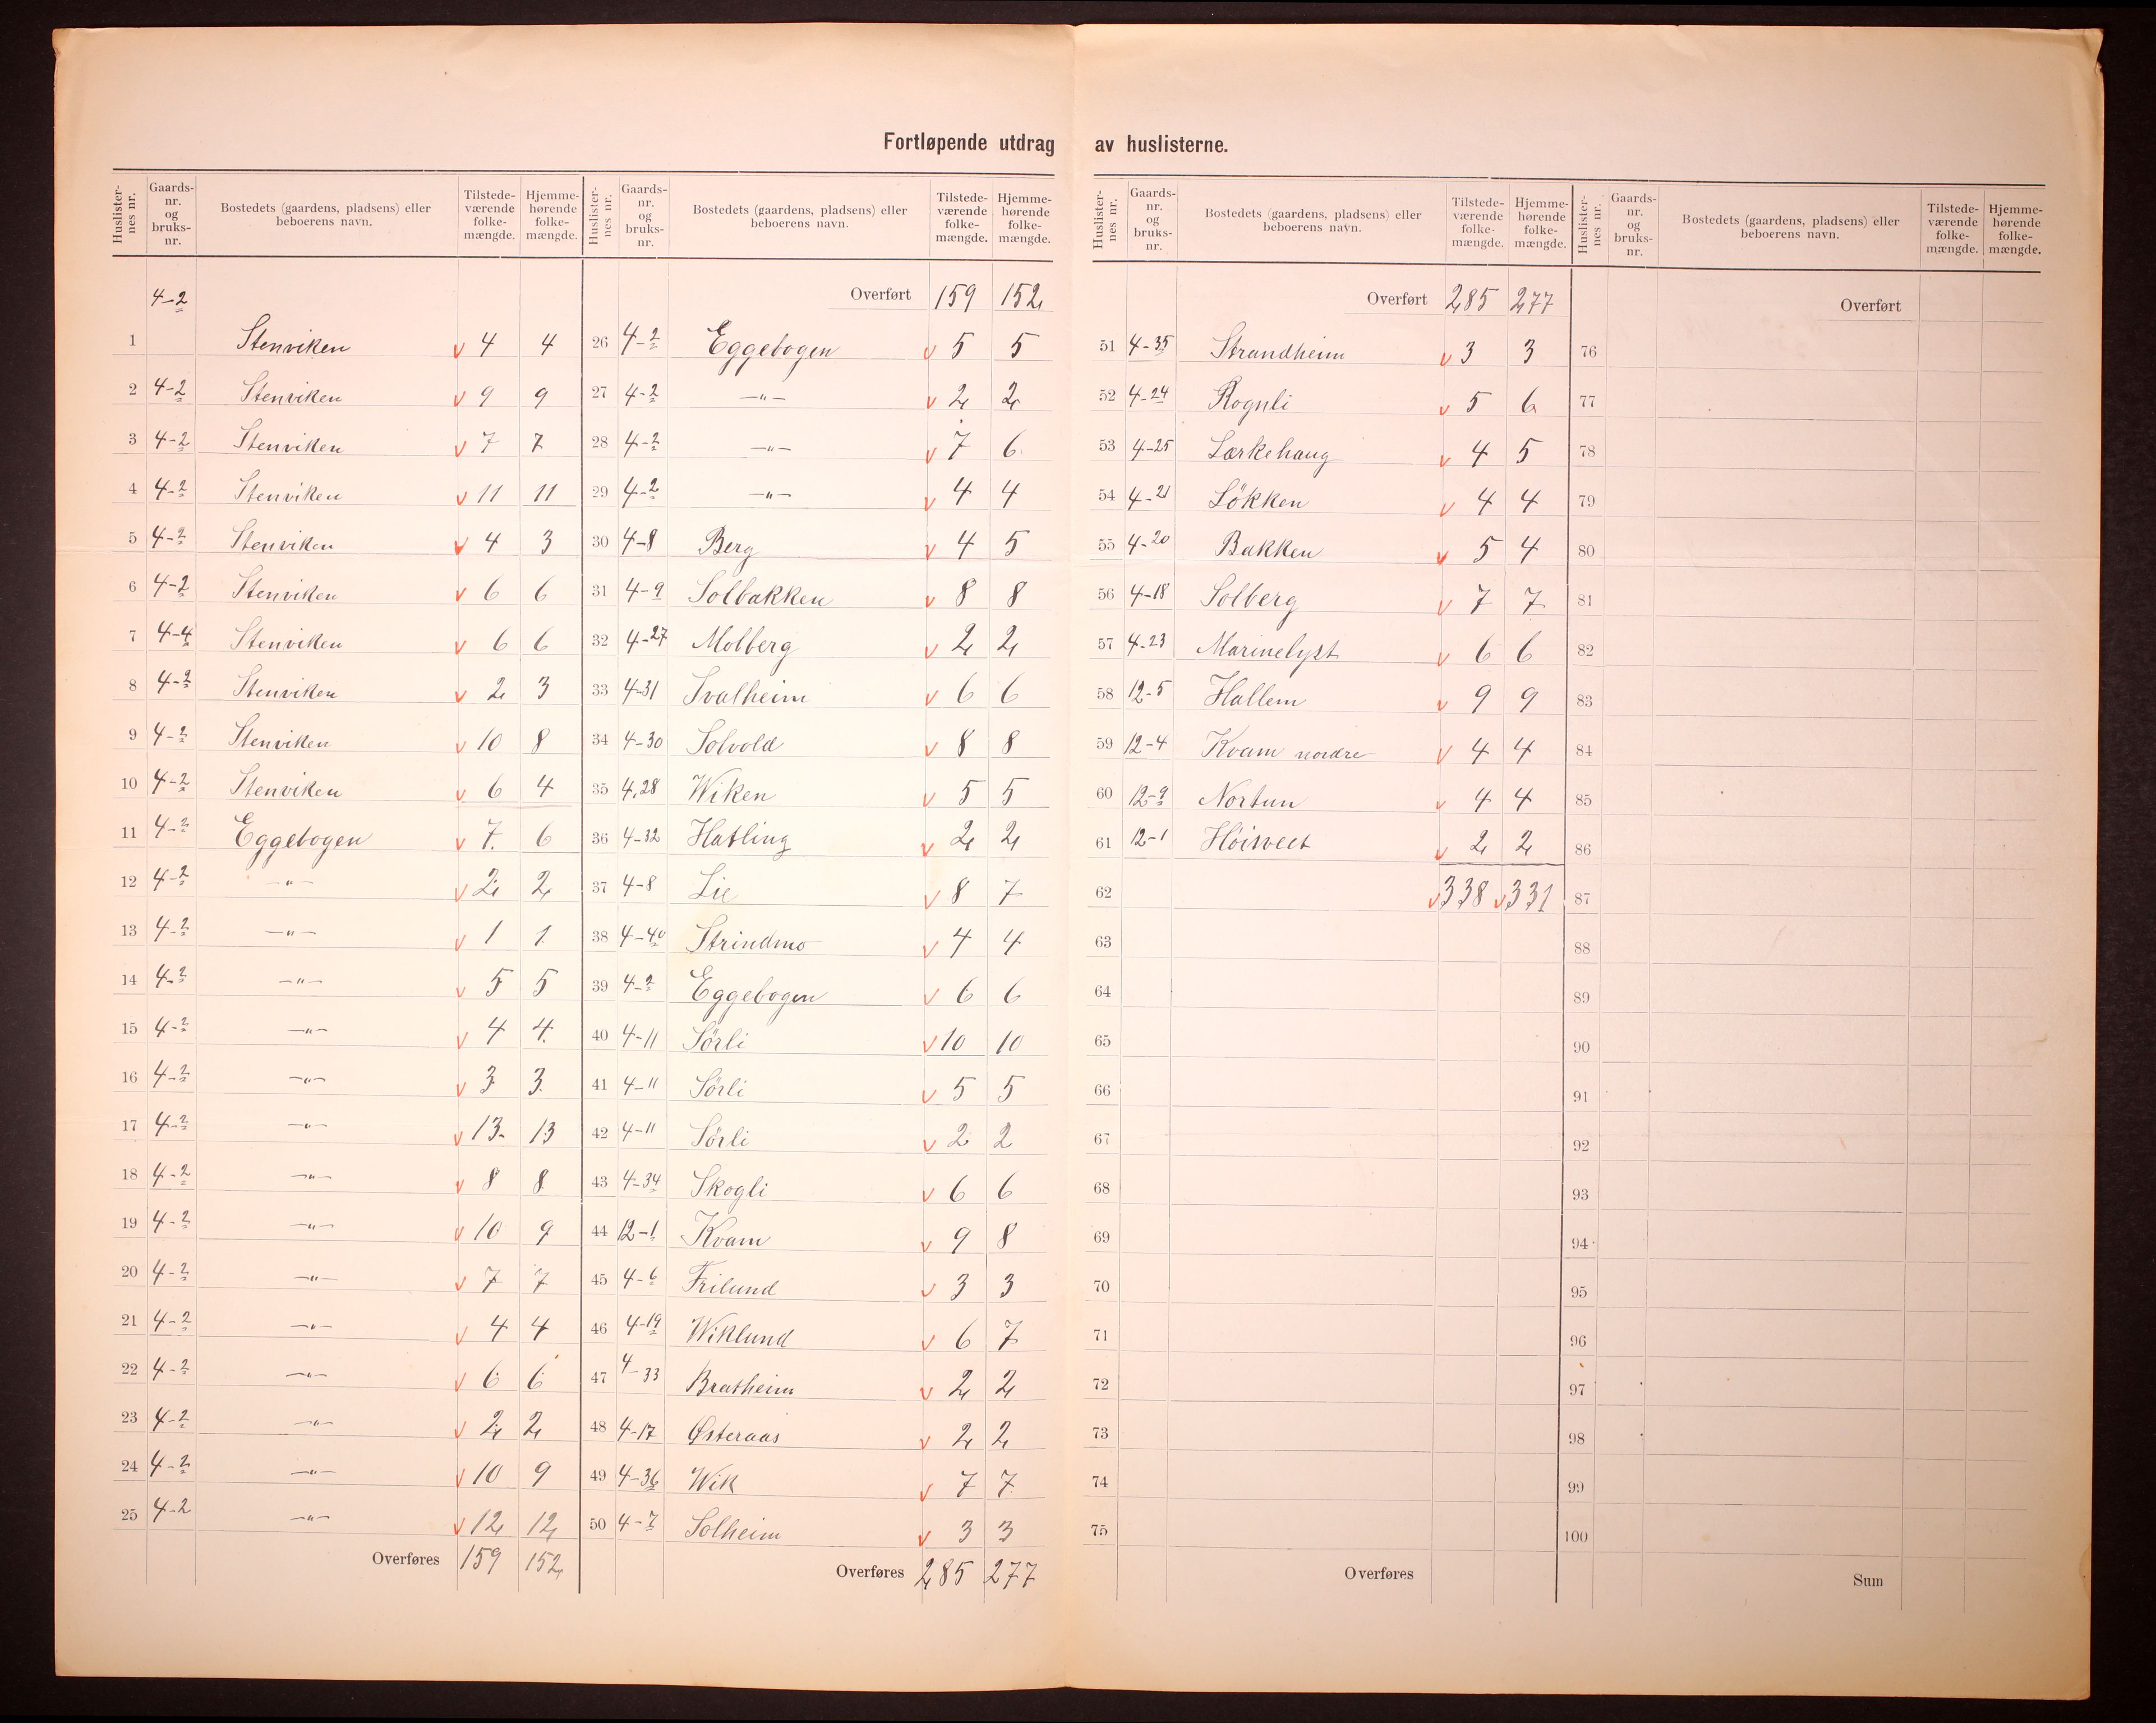 Fortløpende utdrag av huslisterne.
Huslisternes nr. Gaards-nr. og bruks-nr. Bostedets (gaardens, pladsens) eller beboerens navn. Tilstedeværende folkemængde. Hjemmehørende folkemængde.
4-2
1 Stenviken v 4 4
2 4-2 Stenviken v 9 9
3 4-2 Stenviken v 7 7
4 4-2 Stenviken v 11 11
5 4-2 Stenviken v 4 3
6 4-2 Stenviken v 6 6
7 4-4 Stenviken v 6 6
8 4-2 Stenviken v 2 3
9 4-2 Stenviken v 10 8
10 4-2 Stenviken v 6 4
11 4-2 Eggebogen v 7 6
12 4-2 -"- v 2 2
13 4-2 -"- v 1 1
14 4-2 -"- v 5 5
15 4-2 -"- v 4 4
16 4-2 -"- v 3 3
17 4-2 -"- v 13 13
18 4-2 -"- v 8 8
19 4-2 -"- v 10 9
20 4-2 -"- v 7 7
21 4-2 -"- v 4 4
22 4-2 -"- v 6 6
23 4-2 -"- v 2 2
24 4-2 -"- v 10 9
25 4-2 -"- v 12 12
Overføres 159 152
Huslisternes nr. Gaards-nr. og bruks-nr. Bostedets (gaardens, pladsens) eller beboerens navn. Tilstedeværende folkemængde. Hjemmehørende folkemængde.
Overført 159 152
26 4-2 Eggebogen v 5 5
27 4-2 -"- v 2 2
28 4-2 -"- v 7 6
29 4-2 -"- v 4 4
30 4-8 Berg v 4 5
31 4-9 Solbakken v 8 8
32 4-27 Molberg v 2 2
33 4-31 Svalheim v 6 6
34 4-30 Solvold v 8 8
35 4,28 Wiken v 5 5
36 4-32 Hatling v 2 2
37 4-8 Lie v 8 7
38 4-40 Strindmo v 4 4
39 4-2 Eggebogen v 6 6
40 4-11 Sörli v 10 10
41 4-11 Sörli v 5 5
42 4-11 Sörli v 2 2
43 4-34 Skogli v 6 6
44 12-1 Kvam v 9 8
45 4-6 Frilund v 3 3
46 4-19 Wiklund v 6 7
47 4-33 Bratheim v 2 2
48 4-17 Østeraas v 2 2
49 4-36 Wik v 7 7
50 4-7 Solheim v 3 3
Overføres 285 277
Huslisternes nr. Gaards-nr. og bruks-nr. Bostedets (gaardens, pladsens) eller beboerens navn. Tilstedeværende folkemængde. Hjemmehørende folkemængde.
Overført 285 277
51 4-35 Strandheim v 3 3
52 4-24 Rognli v 5 6
53 4-25 Lærkehaug v 4 5
54 4-21 Lökken v 4 4
55 4-20 Bakken v 5 4
56 4-18 Solberg v 7 7
57 4-23 Marinelyst v 6 6
58 12-5 Hallem v 9 9
59 12-4 Kvam nordre v 4 4
60 12-9 Nortun v 4 4
61 12-1 v 2 2
62 v 338 v 331
63
64
65
66
67
68
69
70
71
72
73
74
75
Overføres
Huslisternes nr. Gaards-nr. og bruks-nr. Bostedets (gaardens, pladsens) eller beboerens navn. Tilstedeværende folkemængde. Hjemmehørende folkemængde.
Overført
76
77
78
79
80
81
82
83
84
85
86
87
88
89
90
91
92
93
94
95
96
97
98
99
100
Sum